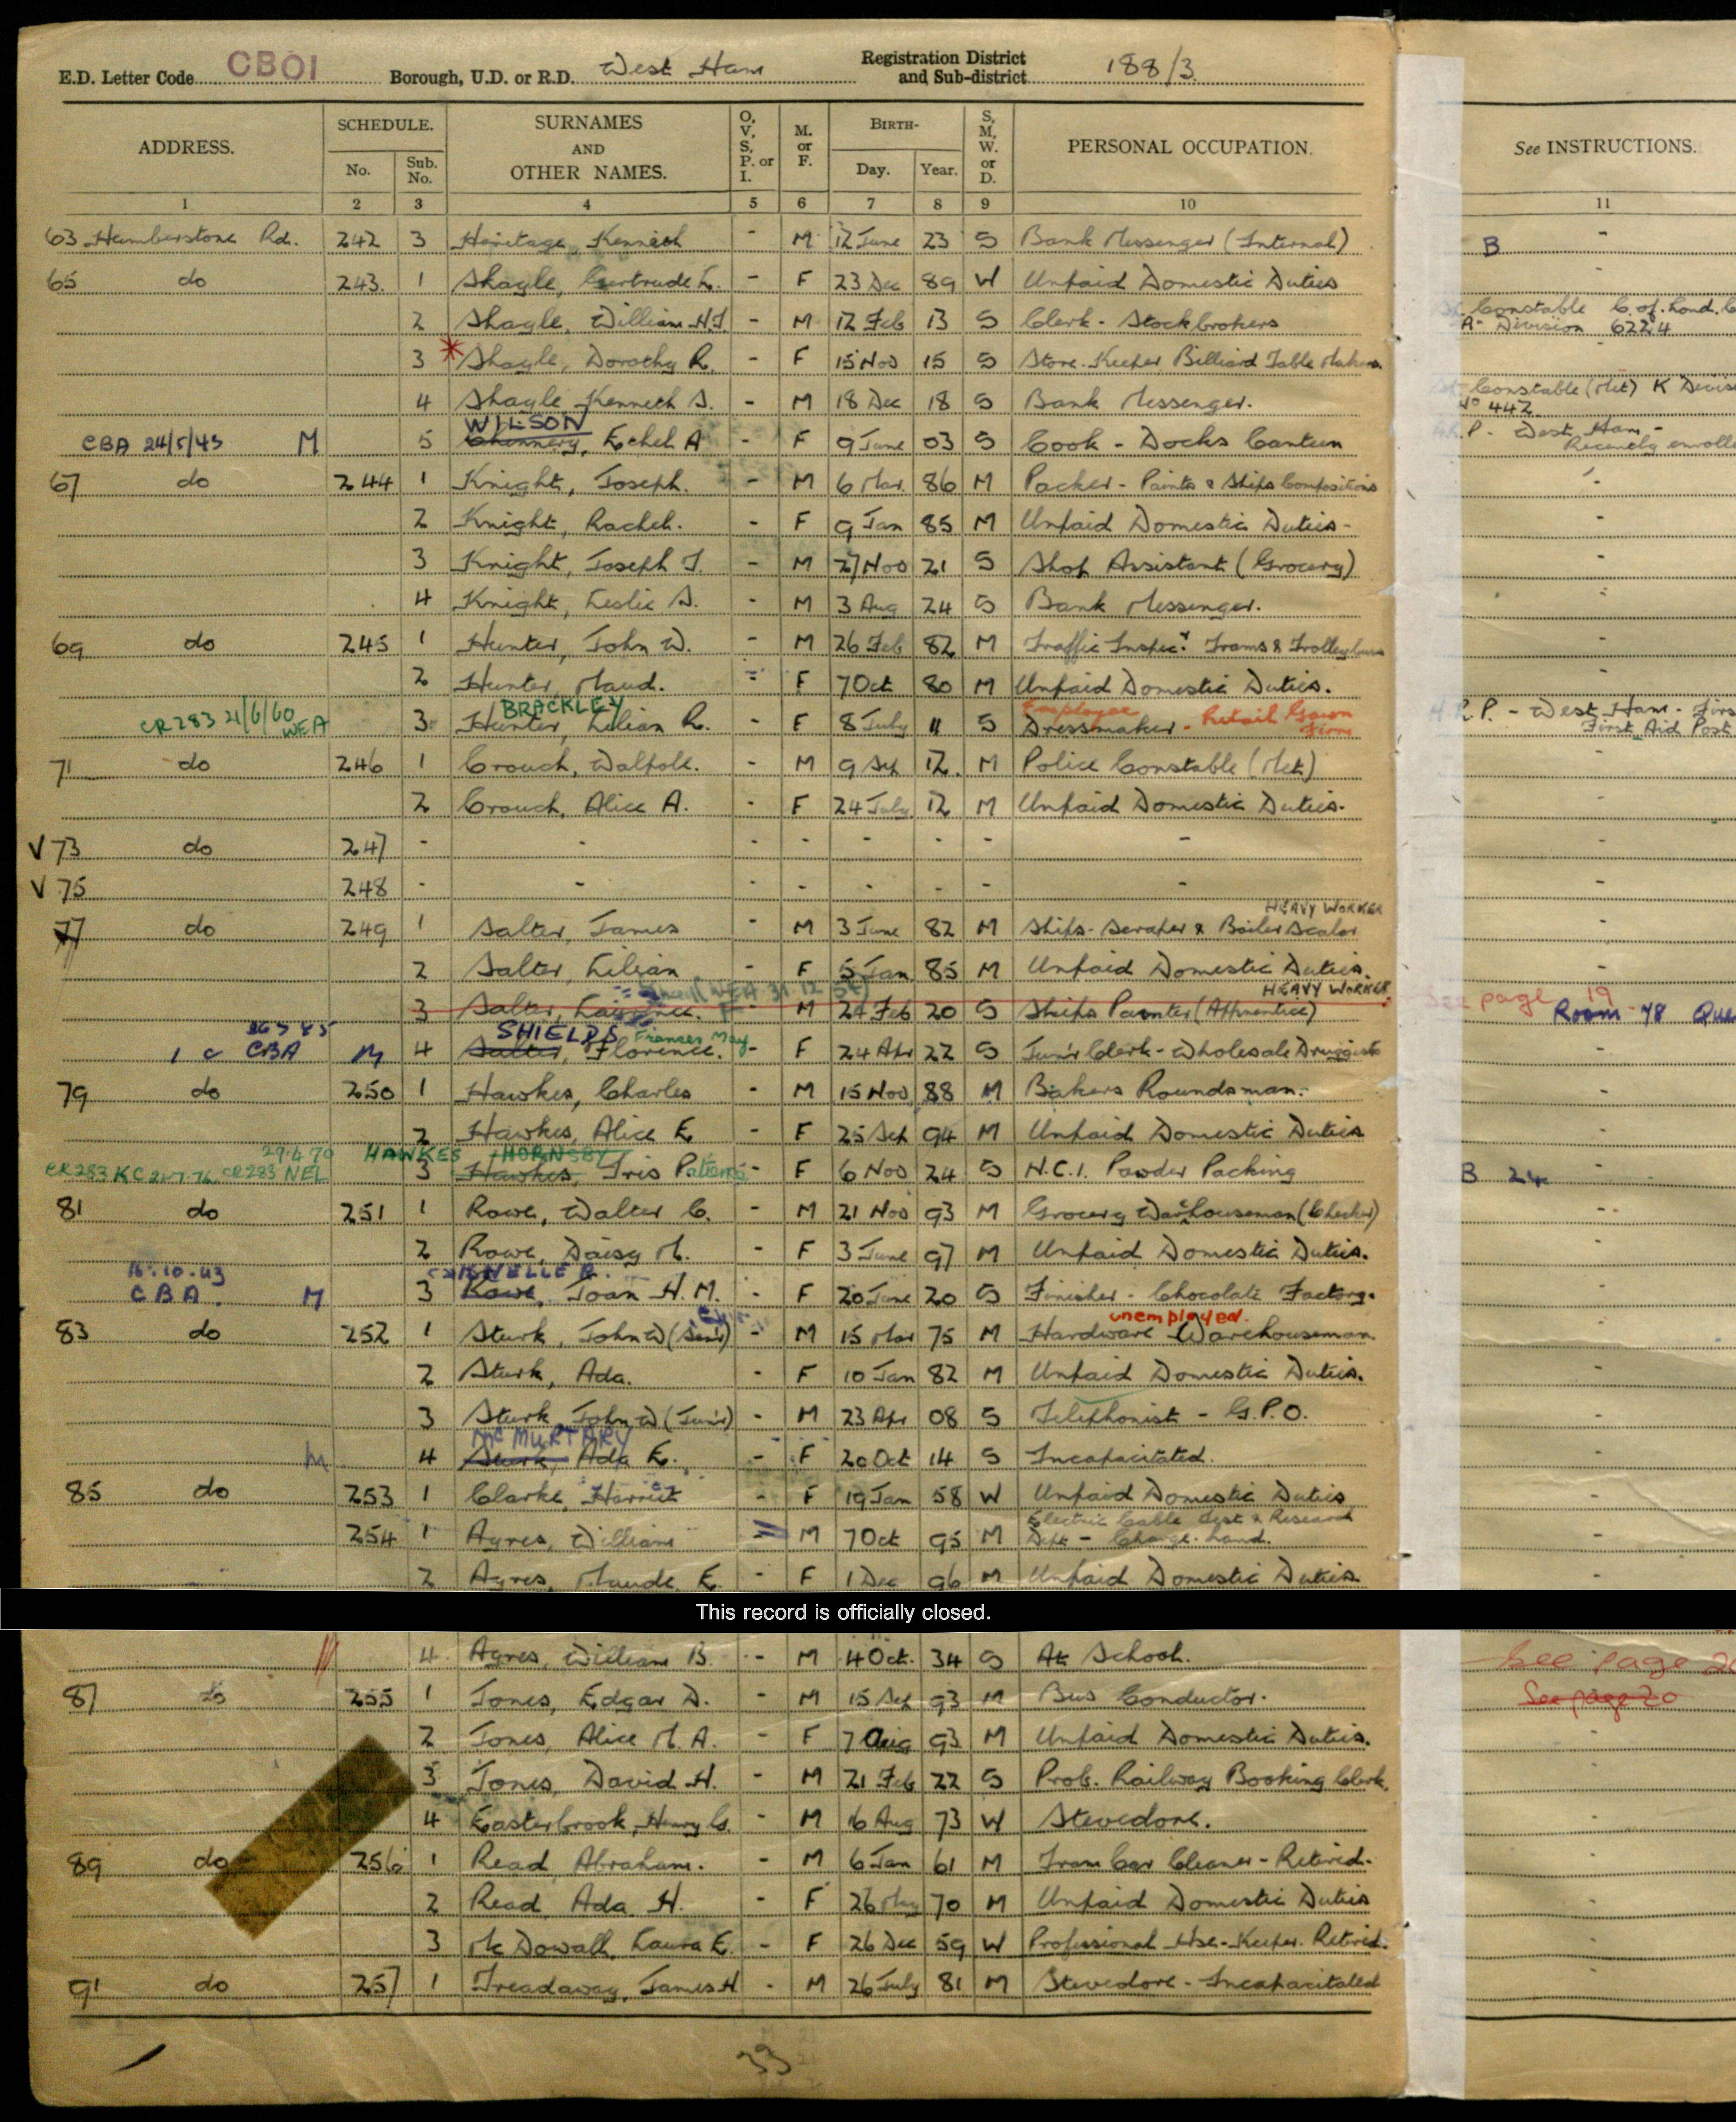 E.D. Letter Code CBOI Borough, U.D. or R.D. West Ham Registration District and Sub-district 188/3
ADDRESS. SCHEDULE. No. Sub. No. SURNAMES AND OTHER NAMES. O, V, S, P. or I. M. or F. BIRTH- Day. Year. S, M, W. or D. PERSONAL OCCUPATION. See INSTRUCTIONS.
1 2 3 4 5 6 7 8 9 10 11
63 Humberstone Rd. 242 3 Heritage, Kenneth - M 12 June 23 S Bank Messenger (Internal) B -
65 do 243 1 Shayle, Gertrude E. - F 23 Dec 89 W Unpaid Domestic Duties -
2 Shayle, William H.J. - M 12 Feb 13 S Clerk - Stockbrokers Constable C. of Lond.
A- Division 622A
3 * Shayle, Dorothy R. - F 15 Nov 15 S Store-Keeper Billiard Table Makers -
4 Shayle Kenneth S. - M 18 Dec 18 S Bank Messenger. Constable (Met) K
No 442
WILSON
CBA 24/5/43 M 5 Chinnery, Ethel A - F 9 June 03 S Cook - Docks Canteen P. - West Ham -
Recently
67 do 244 1 Knight, Joseph. - M 6 Mar. 86 M Packer - Paints & Ships Compositions -
2 Knight, Rachel. - F 9 Jan 85 M Unpaid Domestic Duties - -
3 Knight, Joseph J. - M 27 Nov 21 S Shop Assistant (Grocery) -
4 Knight, Leslie S. - M 3 Aug 24 S Bank Messenger. -
69 do 245 1 Hunter, John W. - M 26 Feb 82 M Traffic Inspecr. Trams & Trolleybuses -
2 Hunter, Maud. - F 7 Oct 80 M Unpaid Domestic Duties. -
BRACKLEY Employee Retail Gown Firm
CR283 21/6/60 WEA 3 Hunter, Lilian R. - F 8 July 11 S Dressmaker - R.P. - West Ham -
First Aid Post
71 do 246 1 Crouch, Walpole. - M 9 Sep 12 M Police Constable (Met.) -
2 Crouch, Alice A. - F 24 July 12 M Unpaid Domestic Duties. -
V 73 do 247 - - - - - - - - -
V 75 248 - - - - - - - - -
HEAVY WORKER
77 do 249 1 Salter, James - M 3 June 82 M Ships-Scraper & Boiler Scaler -
2 Salter, Lilian - F 5 Jan 85 M Unpaid Domestic Duties. -
HEAVY WORKER
3 Salter, Lawrence. M 24 Feb 20 S Ships Painter (Apprentice) See page 19 Room 78
SHIELDS Frances May
CBA M 4 Salter, Florence. - F 24 Apr 22 S Junr Clerk - Wholesale Druggists -
79 do 250 1 Hawkes, Charles - M 15 Nov 88 M Bakers Roundsman. -
2 Hawkes, Alice E - F 25 Sep 94 M Unpaid Domestic Duties -
29.4.70 HAWKES HORNSBY
CR283 KC 21.7.76 CR283 NEL 3 Hawkes, Iris Patience - F 6 Nov 24 S N.C.I. Powder Packing B 24 -
81 do 251 1 Rowe, Walter C. - M 21 Nov 93 M Grocery Warehouseman (Checker) -
2 Rowe, Daisy M. - F 3 June 97 M Unpaid Domestic Duties. -
16.10.43
CBA. M 3 Rowe, Joan H.M. - F 20 June 20 S Finisher - Chocolate Factory. -
unemployed.
83 do 252 1 Sturk, John W (Senr) - M 15 Mar 75 M Hardware Warehouseman -
2 Sturk, Ada. - F 10 Jan 82 M Unpaid Domestic Duties. -
3 Sturk, John W (Junr) - M 23 Apr 08 S Telephonist - G.P.O. -
Mc MURTARY
M 4 Sturk, Ada E. - F 20 Oct 14 S Incapacitated. -
85 do 253 1 Clarke, Harriet - F 19 Jan 58 W Unpaid Domestic Duties -
Electric Cable Test & Research
254 1 Ayres, William - M 7 Oct 95 M Dept - Charge-hand. -
2 Ayres, Maude E. - F 1 Dec 96 M Unpaid Domestic Duties -
This record is officially closed.
4 Ayres, William B. - M 4 Oct. 34 S At School. See page
87 do 255 1 Jones, Edgar D. - M 15 Sep 93 M Bus Conductor. See page 20
2 Jones, Alice M. A. - F 7 Aug 93 M Unpaid Domestic Duties. -
3 Jones, David H. - M 21 Feb 22 S Prob. Railway Booking Clerk. -
4 Easterbrook, Henry G. - M 16 Aug 73 W Stevedore. -
89 do 256 1 Read, Abraham. - M 6 Jan 61 M Tram Car Cleaner - Retired. -
2 Read, Ada H. - F 26 May 70 M Unpaid Domestic Duties -
3 Mc Dowall, Laura E. - F 26 Dec 59 W Professional Hse-Keeper. Retired. -
91 do 257 1 Treadaway, James H - M 26 July 81 M Stevedore - Incapacitated -
33